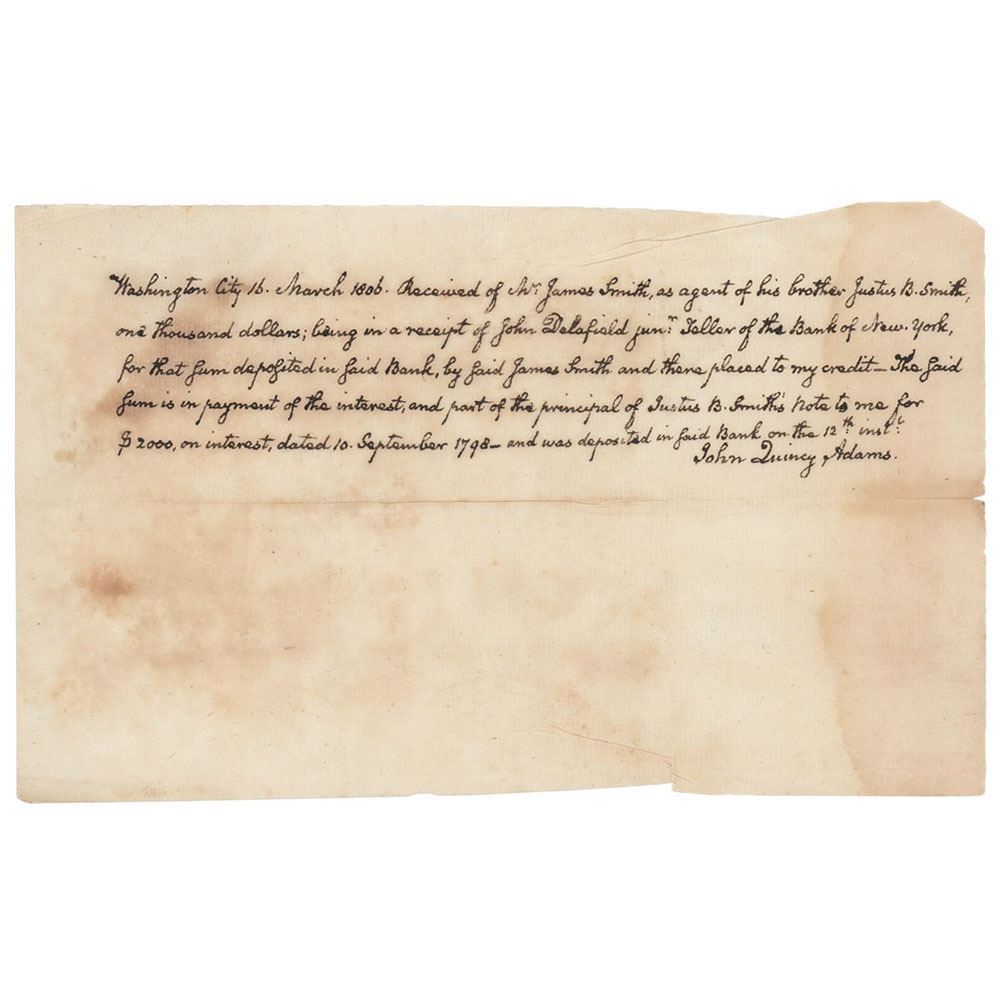 Washington City 16. March 1806. Received of Mr. James Smith, as agent of his brother Justus B. Smith,
one thousand dollars; being in a receipt of John Delafield junr. Teller of the Bank of New-York,
for that sum deposited in said Bank, by said James Smith and there placed to my credit — The said
sum is in payment of the interest, and part of the principal of Justus B. Smith's Note to me for
$2000, on interest, dated 10. September 1798 — and was deposited in said Bank on the 12th. instt.
John Quincy Adams.